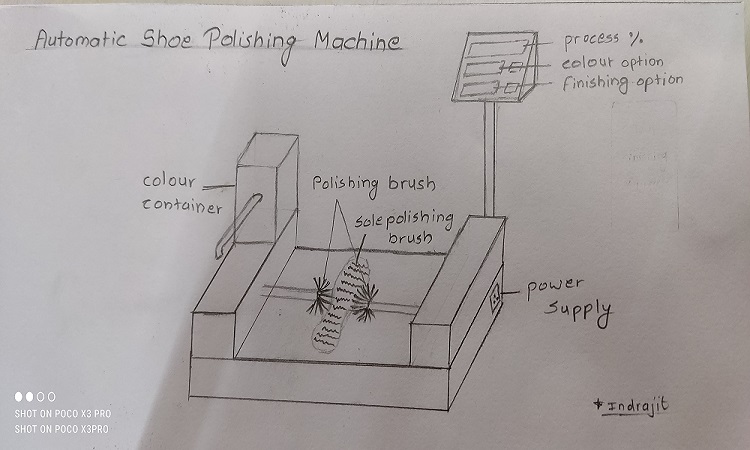 Automatic Shoe Polishing Machine
process %
colour option
Finishing option
colour
container
Polishing brush
sole polishing
brush
power
supply
*Indrajit
SHOT ON POCO X3 PRO
SHOT ON POCO X3PRO